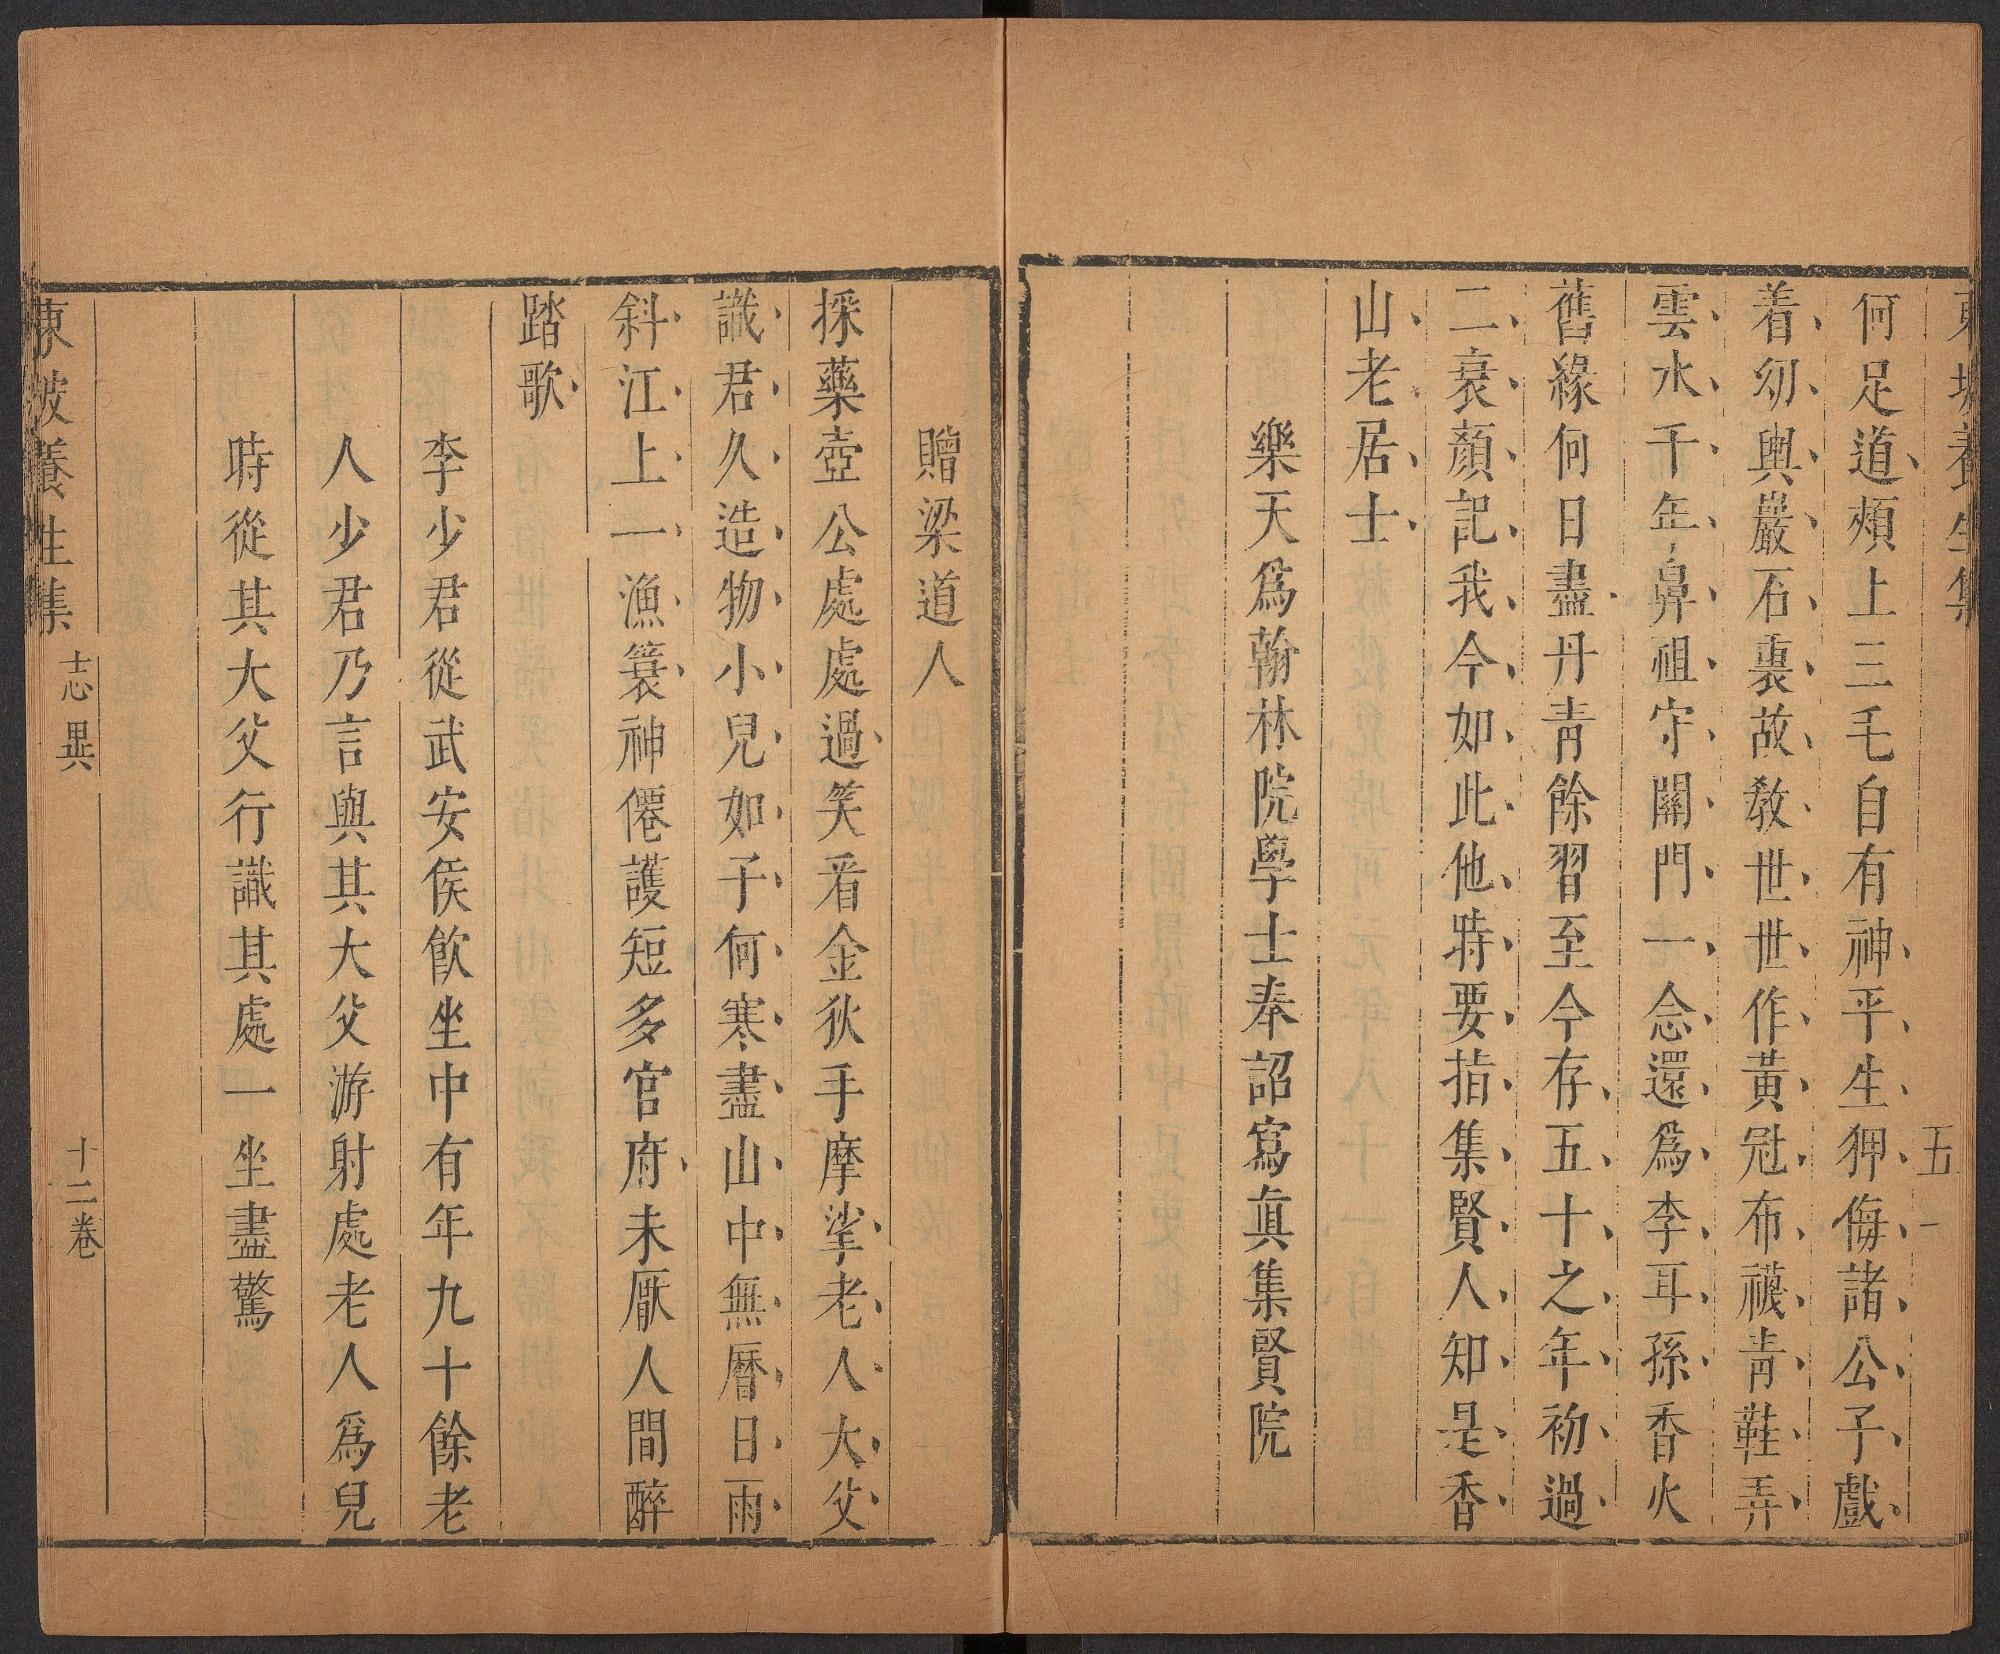 東坡養生集
五
何足道頰上三毛自有神平生狎侮諸公子戲
着幼輿巖石裏故敎世世作黃冠布襪靑鞋弄
雲水千年鼻祖守關門一念還爲李耳孫香火
舊緣何日盡丹靑餘習至今存五十之年初過
二衰顏記我今如此他時要指集賢人知是香
山老居士
樂天爲翰林院學士奉詔寫眞集賢院
贈梁道人
採藥壺公處處過笑看金狄手摩挲老人大父
識君久造物小兒如子何寒盡山中無曆日雨
斜江上一漁簑神僊護短多官府未厭人間醉
踏歌
李少君從武安侯飮坐中有年九十餘老
人少君乃言與其大父游射處老人爲兒
時從其大父行識其處一坐盡驚
東坡養生集 志異 十二卷